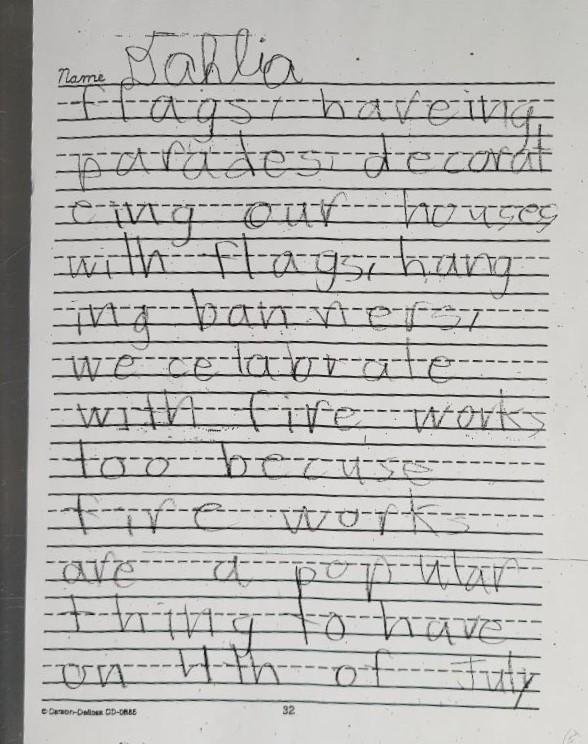 Name Dahlia
flags, haveing
parades, decorat
eing our houses
with flags, hang
ing banners,
we celabrate
with fire works
too becuse
fire works
are a popular
thing to have
on 4th of July
© Carson-Dellosa CD-0885 32